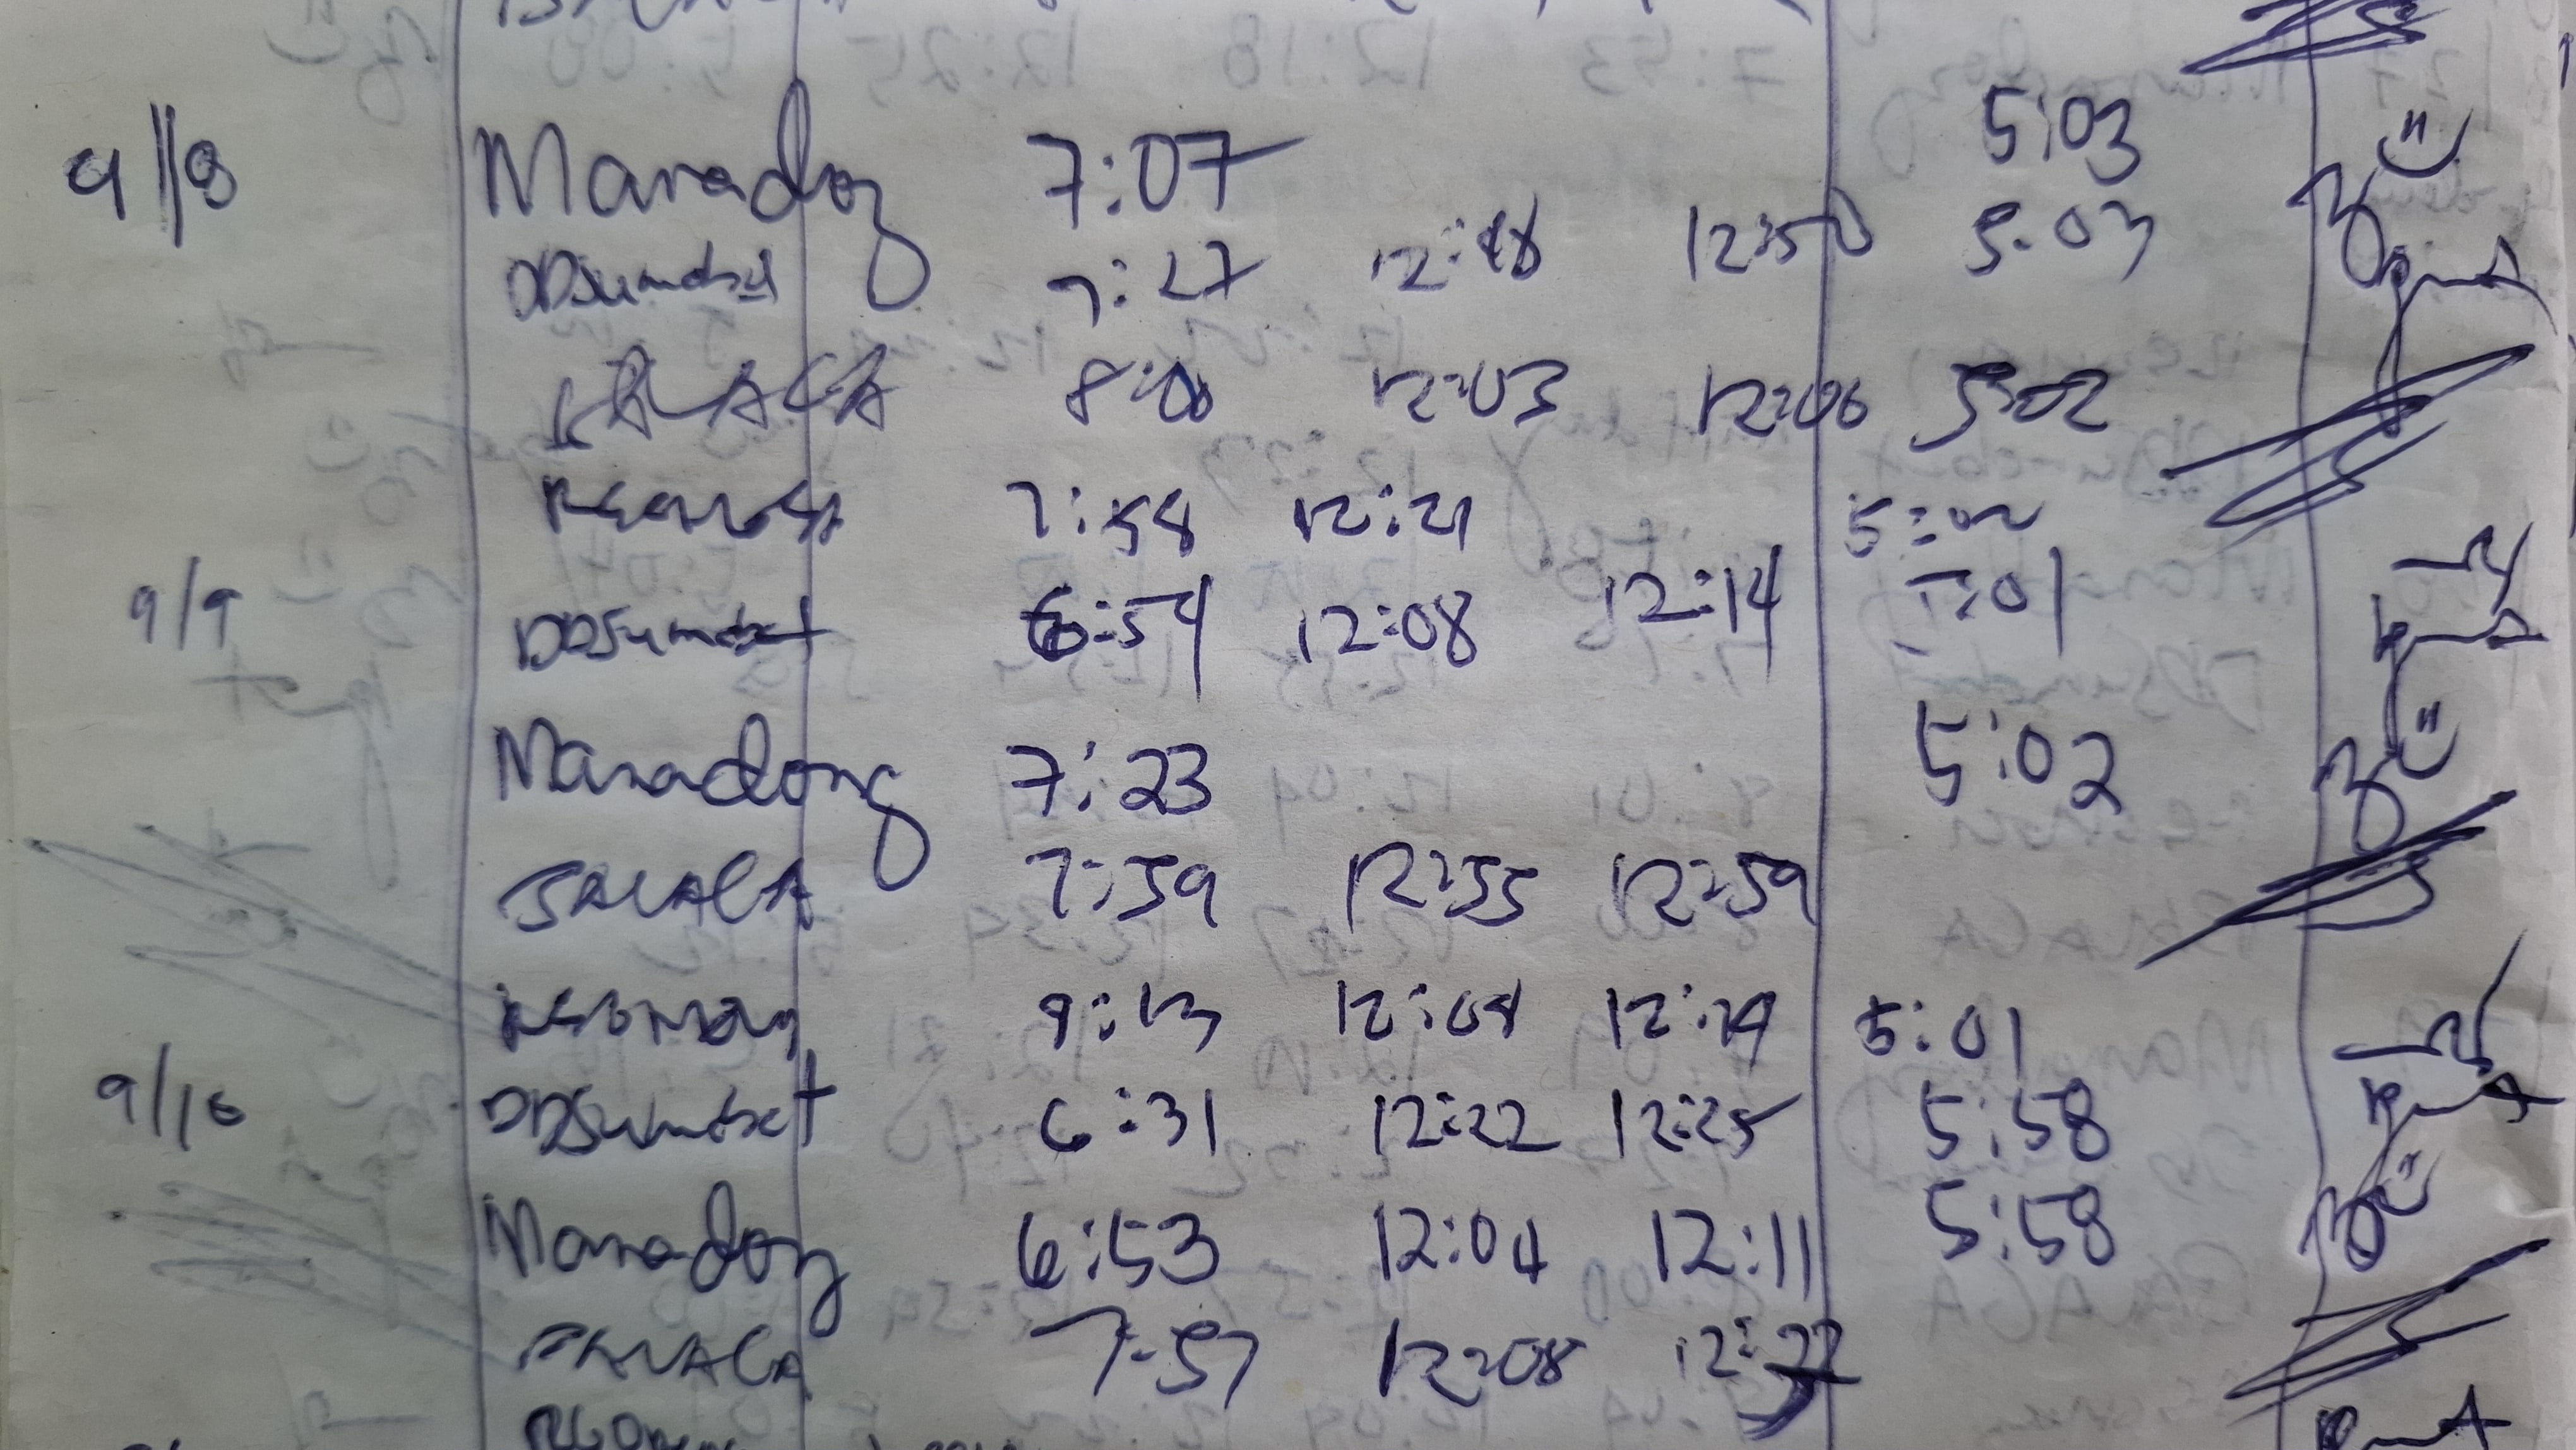 9/8 Maradong 7:07 5:03
DDSumabat 7:27 12:48 12:50 5:03
BALACA 8:00 12:03 12:06 5:02
7:58 12:21 5:02
9/9 DDSumabat 6:54 12:08 12:14 5:01
Maradong 7:23 5:02
BALACA 7:59 12:55 12:59
12:04 12:14 5:01
9/10 DDSumabat 6:31 12:22 12:25 5:58
Maradong 6:53 12:04 12:11 5:58
BALACA 7:57 12:08